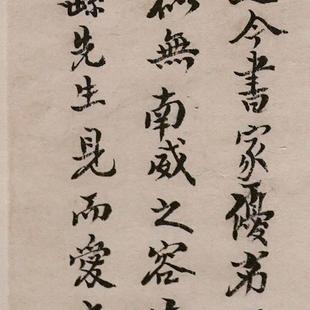 今書家優劣
無南威之容
先生見而愛